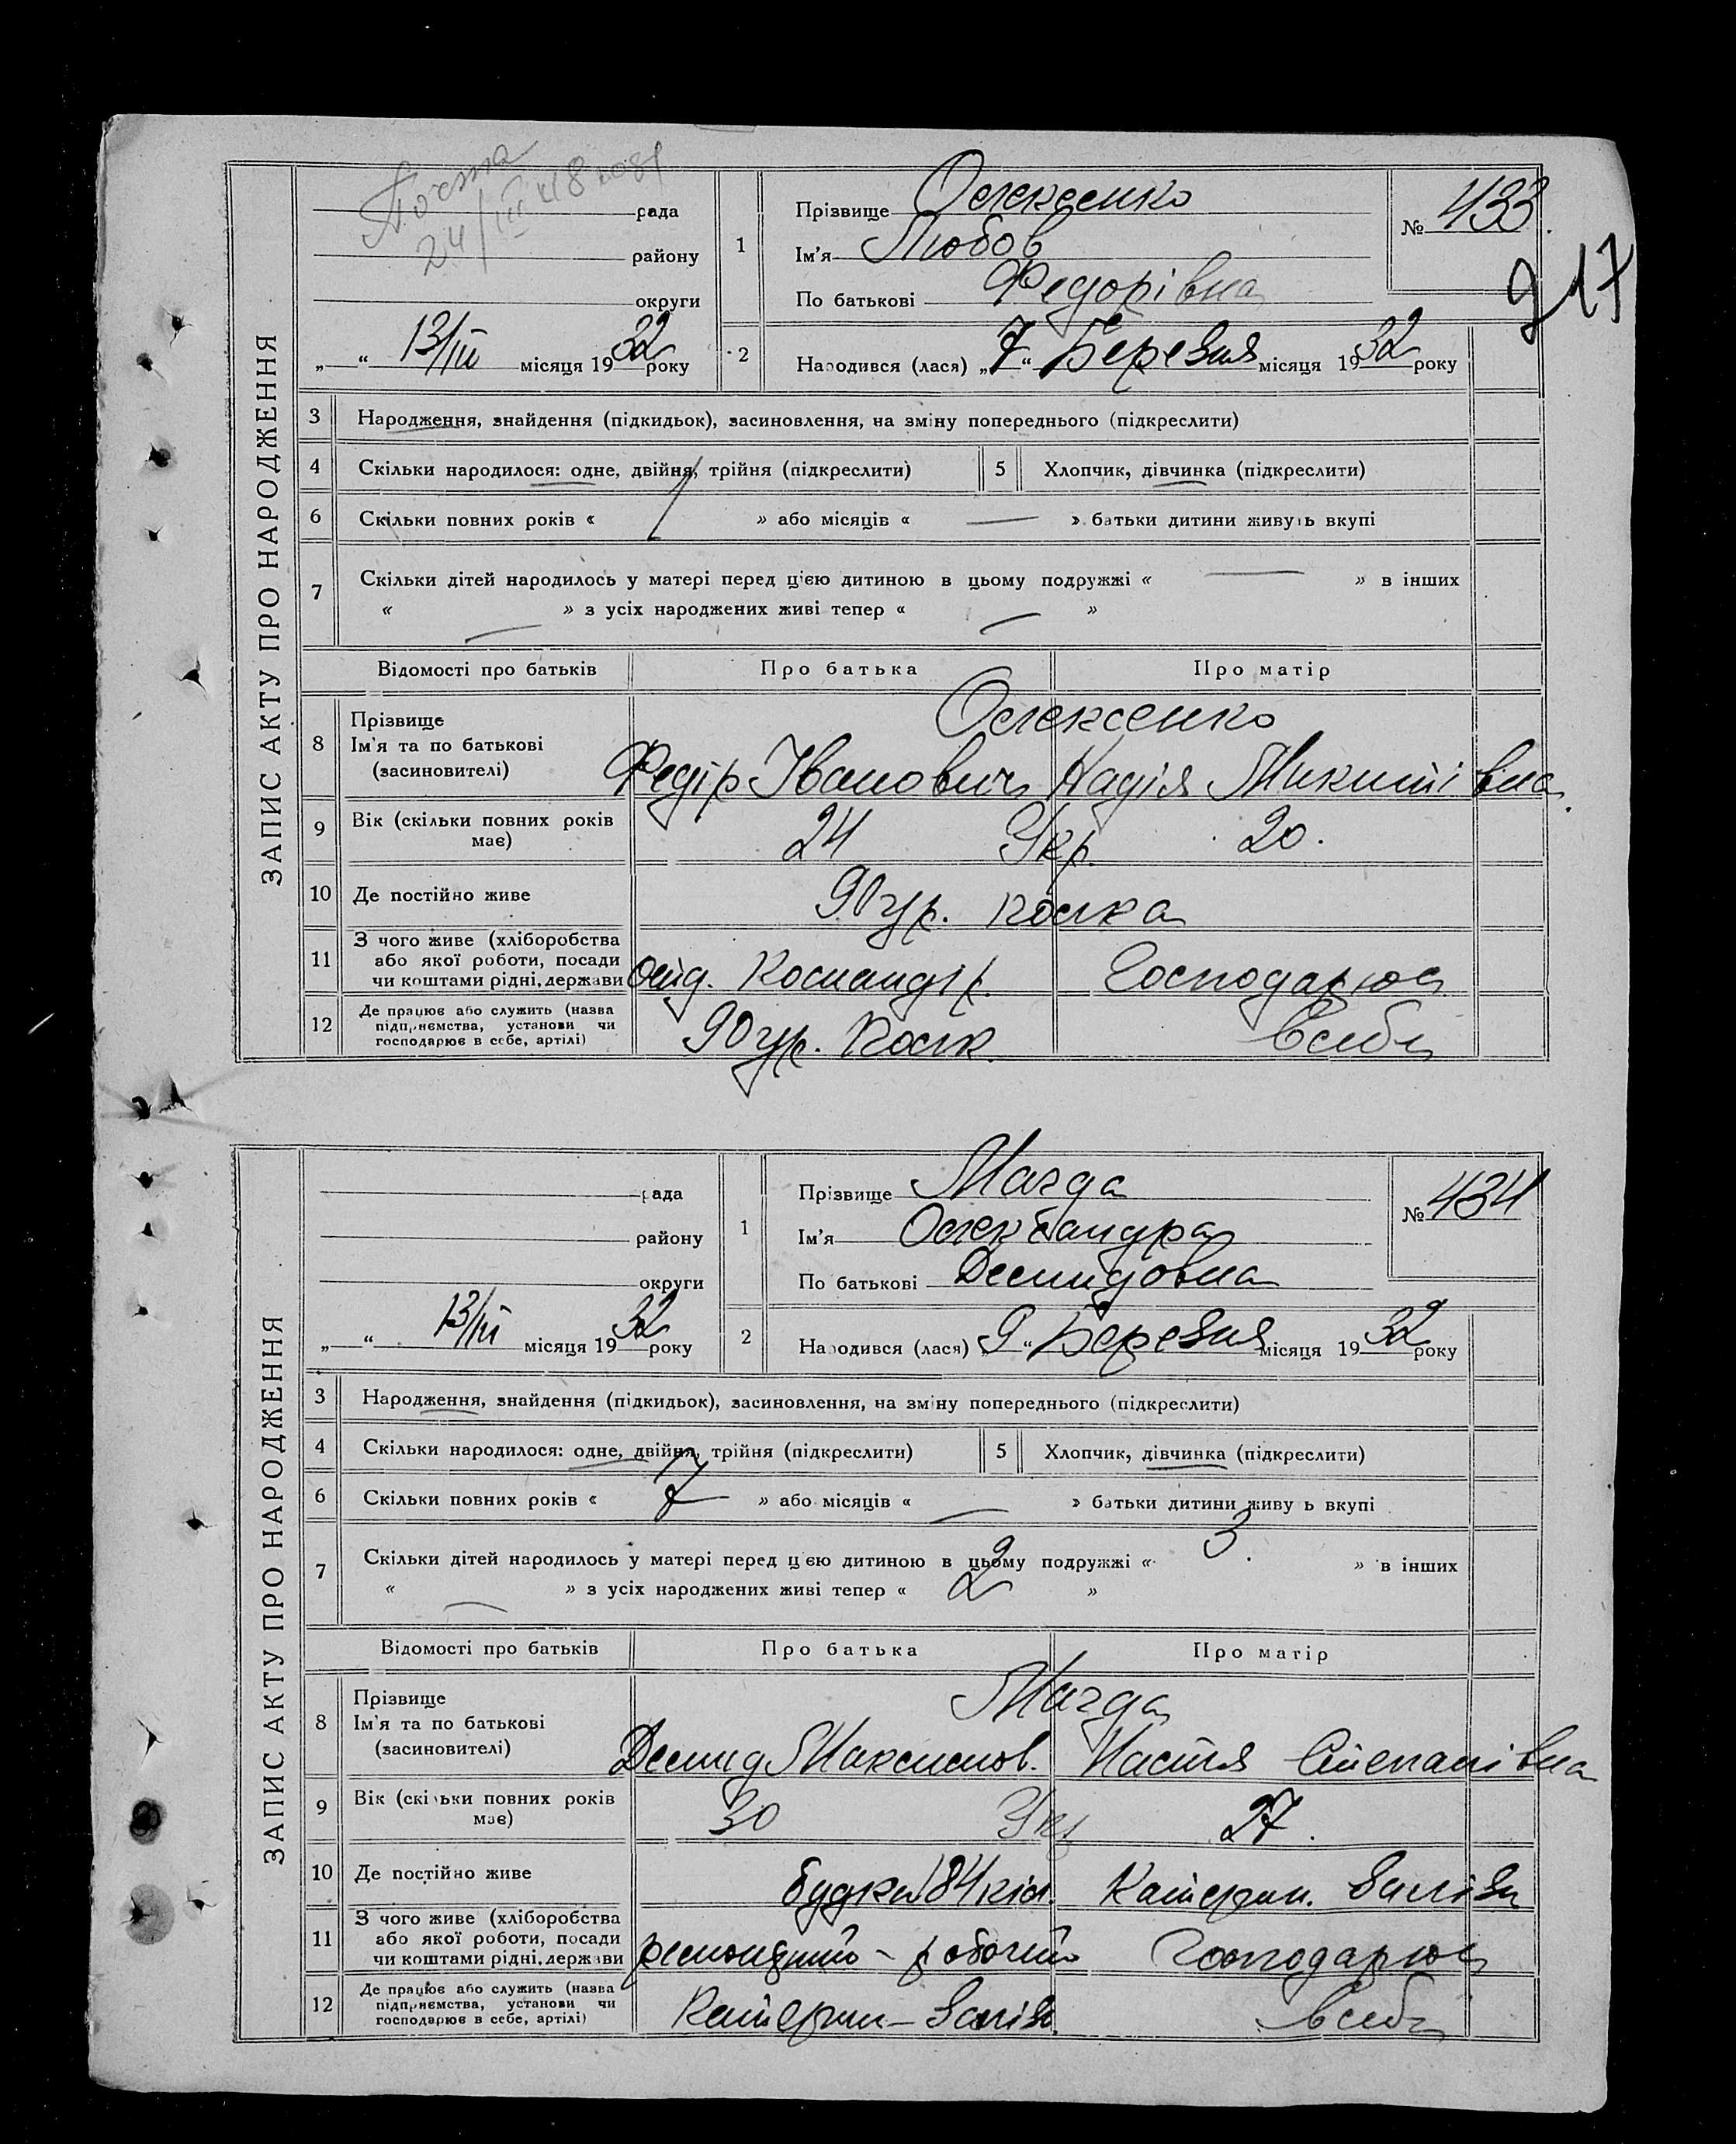 ЗАПИС АКТУ ПРО НАРОДЖЕННЯ
24/III 48
рада
району
округи
„ “ 13/III місяця 1932 року
1
Прізвище Олексенко
Ім'я Любов
По батькові Федорівна
№ 433.
217
2
Народився (лася) „7“ Березня місяця 1932 року
3 Народження, знайдення (підкидьок), засиновлення, на зміну попереднього (підкреслити)
4 Скільки народилося: одне, двійня, трійня (підкреслити) 5 Хлопчик, дівчинка (підкреслити)
6 Скільки повних років « 1 » або місяців « — » батьки дитини живуть вкупі
7 Скільки дітей народилось у матері перед цією дитиною в цьому подружжі « — » в інших
« — » з усіх народжених живі тепер « — »
Відомості про батьків Про батька Про матір
8 Прізвище
Ім'я та по батькові
(засиновителі)
Олексенко
Федір Іванович Надія Микитівна
9 Вік (скільки повних років має) 24 Укр. 20.
10 Де постійно живе 90 ур. полка
11 З чого живе (хліборобства або якої роботи, посади чи коштами рідні, держави Командір. Господарює
12 Де працює або служить (назва підприємства, установи чи господарює в себе, артілі) 90 ур. полк. в себе
ЗАПИС АКТУ ПРО НАРОДЖЕННЯ
рада
району
округи
„ “ 13/III місяця 1932 року
1
Прізвище Магда
Ім'я Олександра
По батькові Демидовна
№ 434
2
Народився (лася) „9“ Березня місяця 1932 року
3 Народження, знайдення (підкидьок), засиновлення, на зміну попереднього (підкреслити)
4 Скільки народилося: одне, двійня, трійня (підкреслити) 5 Хлопчик, дівчинка (підкреслити)
6 Скільки повних років « 7 » або місяців « — » батьки дитини живу ь вкупі
7 Скільки дітей народилось у матері перед цією дитиною в цьому подружжі « 3. » в інших
« — » з усіх народжених живі тепер « 2 »
Відомості про батьків Про батька Про матір
8 Прізвище
Ім'я та по батькові
(засиновителі)
Магда
Демид Максимов. Настя Степанівна
9 Вік (скільки повних років має) 30 Укр 27.
10 Де постійно живе будка 184 кіл. Катерин. Заліз
11 З чого живе (хліборобства або якої роботи, посади чи коштами рідні, держави ремонтний - робочий Господарює
12 Де працює або служить (назва підприємства, установи чи господарює в себе, артілі) Катерин - Заліз. в себе